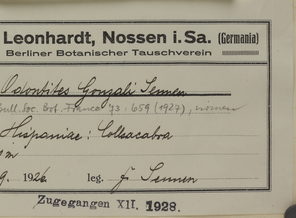 Leonhardt, Nossen i. Sa. (Germania)
Berliner Botanischer Tauschverein
Odontites Gonzali Sennen
Bull. Soc. Bot. France 73: 659 (1927), nomen
Hispaniae: Collsacabra
m
9. 1926 leg. F. Sennen
Zugegangen XII. 1928.